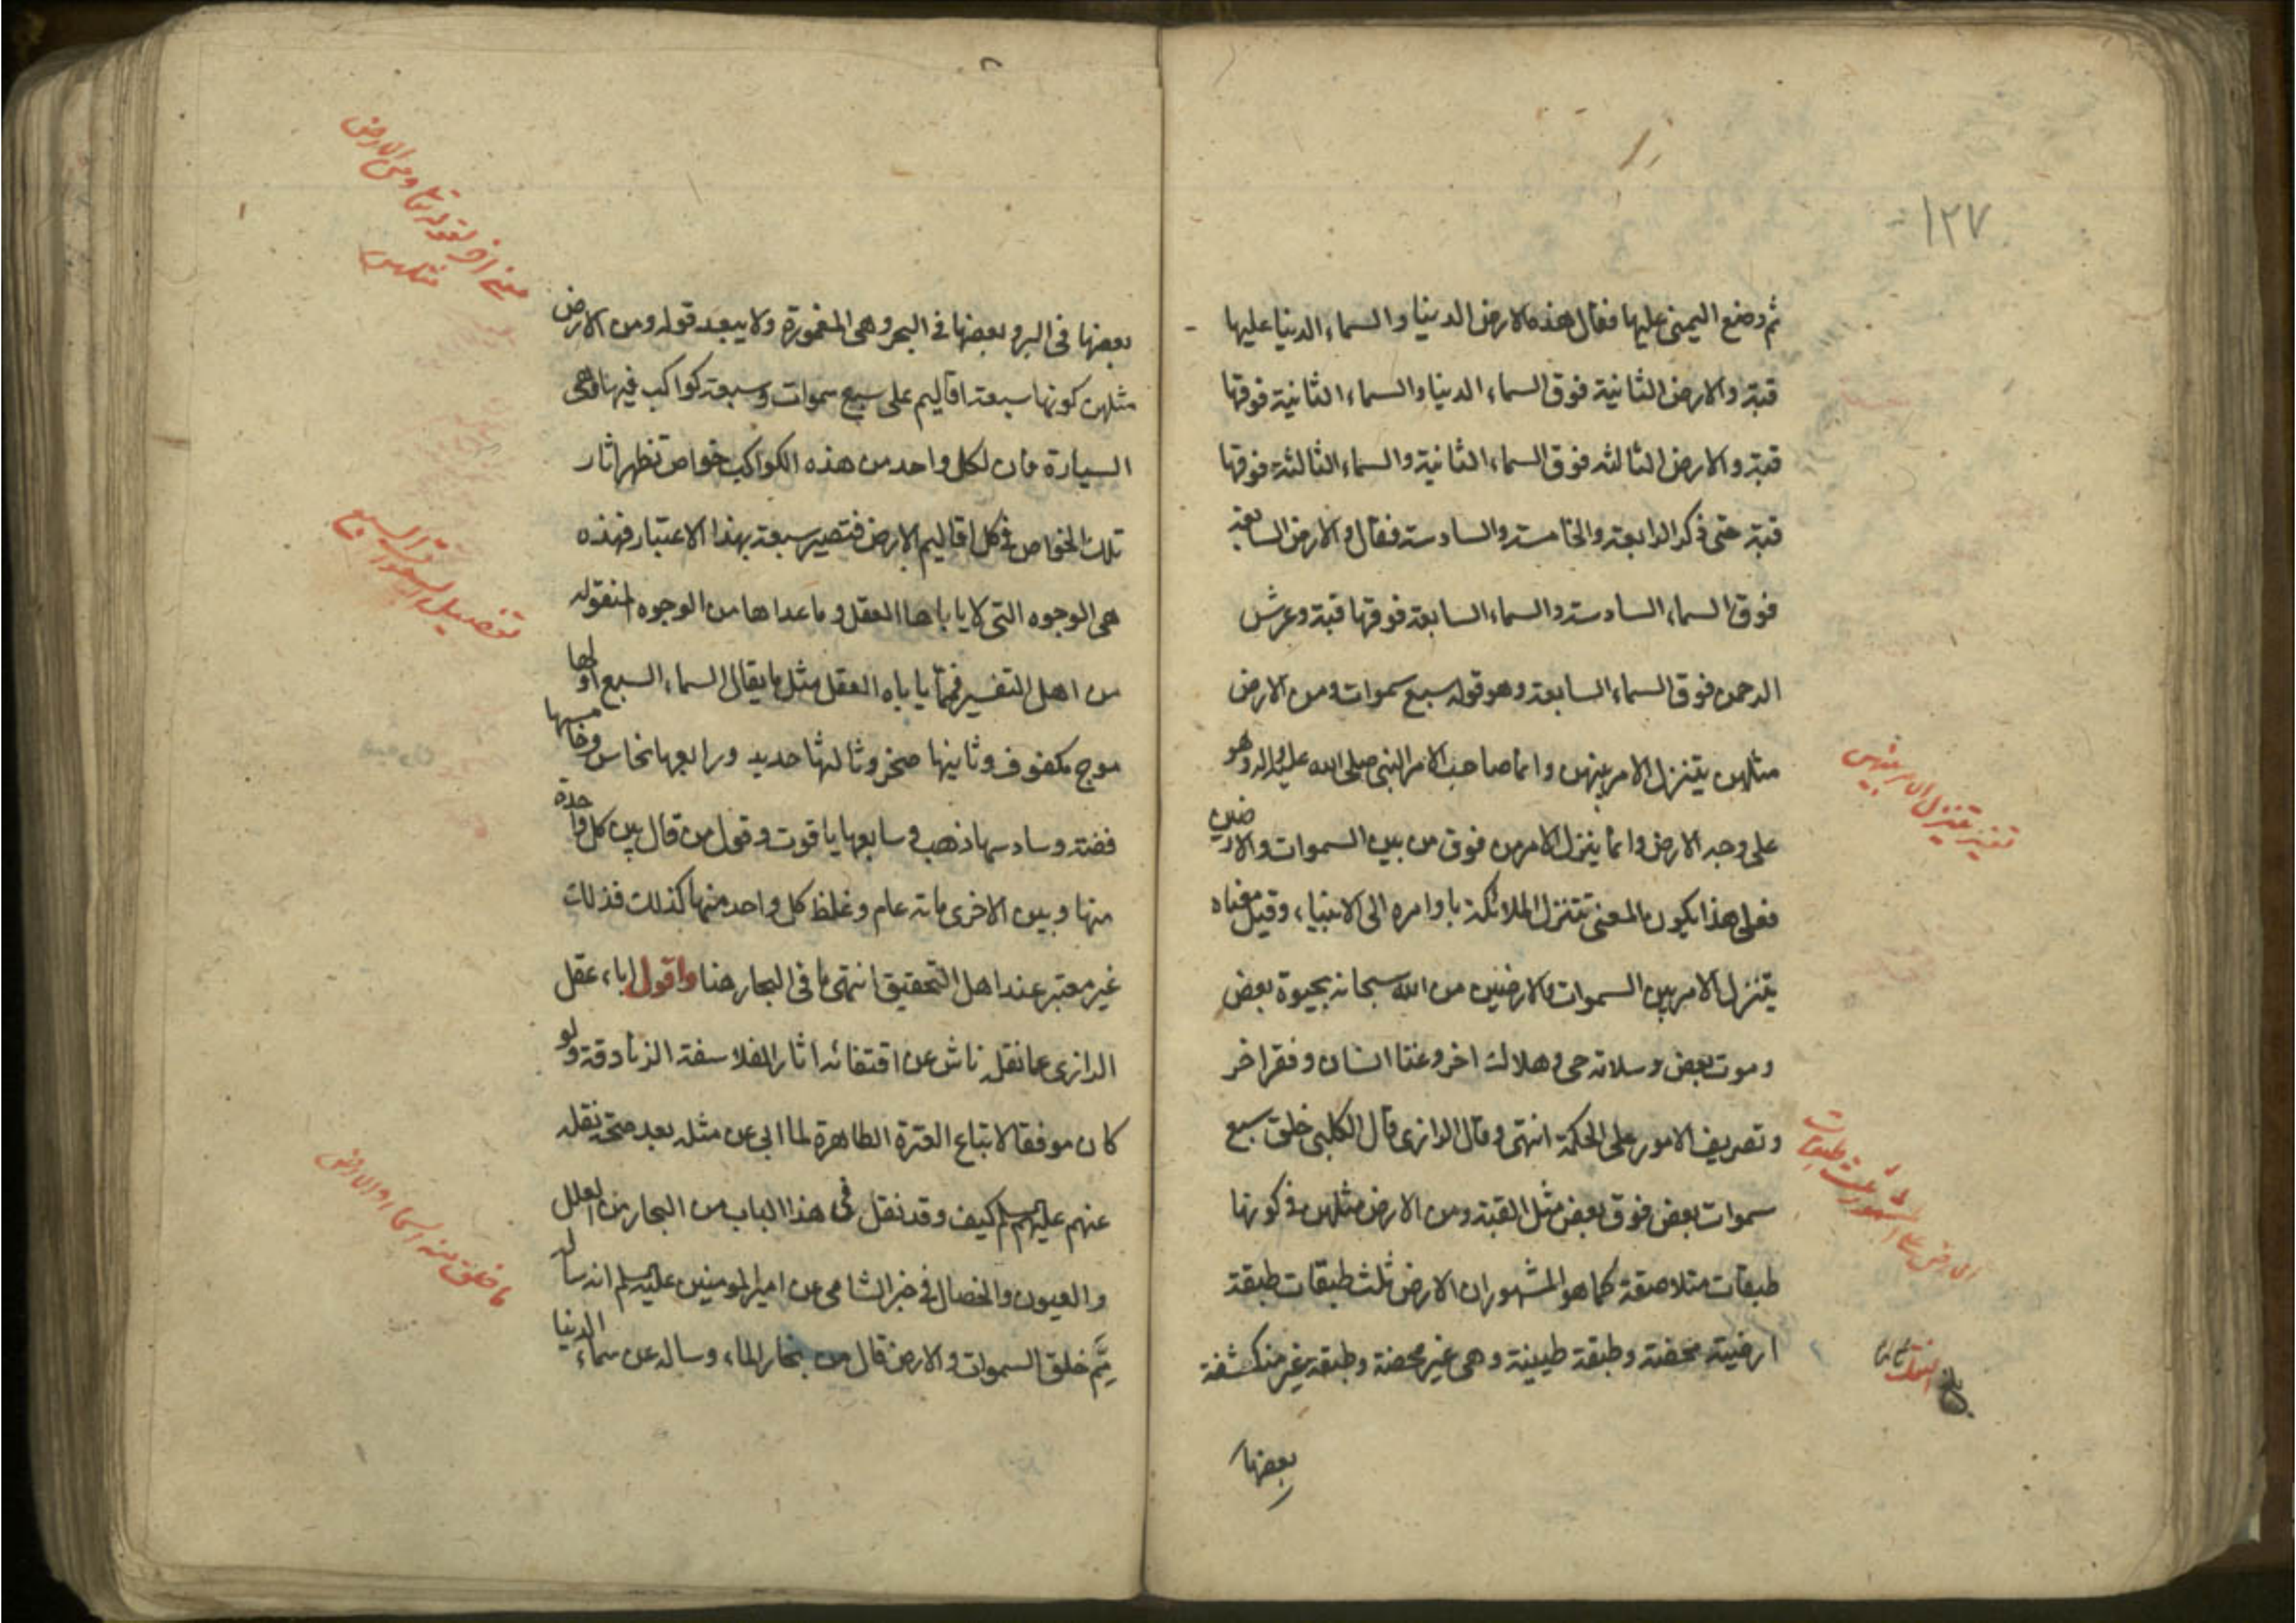 ١٢٧
ثم وضع اليمنى عليها فقال هذه الارض الدنيا والسماء الدنيا عليها
قبة والارض الثانية فوق السماء الدنيا والسماء الثانية فوقها
قبة والارض الثالثه فوق السماء الثانية والسماء الثالثة فوقها
قبة حتى ذكر الرابعة والخامسة والسادسة فقال والارض السابعة
فوق السماء السادسة والسماء السابعة فوقها قبة وعرش
الرحمن فوق السماء السابعة وهو قوله سبع سموات ومن الارض
مثلهن يتنزل الامر بينهن وانما صاحب الامر النبي صلى الله عليه واله وهو
على وجه الارض وانما ينزل الامر من فوق من بين السموات والارضين
فعلى هذا يكون المعنى تتنزل الملائكة باوامره الى الانبياء وقيل معناه
يتنزل الامر بين السموات والارضين من الله سبحانه بحيوة بعض
وموت بعض وسلامة حى وهلاك اخر وغنا انسان وفقر اخر
وتصريف الامور على الحكمة انتهى وقال الرازى قال الكلبى خلق سبع
سموات بعض فوق بعض مثل القبة ومن الارض مثلهن فى كونها
طبقات متلاصقة كما هو المشهور ان الارض ثلث طبقات طبقة
ارضية محضة وطبقة طينية وهى غير محضة وطبقة غير منكشفة
بعضها
تفسير يتنزل الامر بينهن
بعضها فى البر وبعضها فى البحر وهى المغمورة ولا يبعد قوله ومن الارض
مثلهن كونها سبعة اقاليم على سبع سموات وسبعة كواكب فيها وهى
السيارة فان لكل واحد من هذه الكواكب خواص تظهر اثار
تلك الخواص فى كل اقاليم الارض فتصير سبعة بهذا الاعتبار فهذه
هى الوجوه التى لا ياباها العقل وما عداها من الوجوه المنقولة
من اهل التفسير فمما ياباه العقل مثل ما يقال السماء السبع اولها
موج مكفوف وثانيها صخر وثالثها حديد ورابعها نحاس وخامسها
فضة وسادسها ذهب وسابعها ياقوت وقول من قال بين كل واحدة
منها وبين الاخرى ماته عام وغلظ كل واحد منها كذلك فذلك
غير معتبر عند اهل التحقيق انتهى ما فى البحار هنا واقول اباء عقل
الرازى عما نقله ناش عن اقتفائه اثار الفلاسفة الزنادقة ولو
كان موفقا لاتباع العترة الطاهرة لما ابى عن مثله بعد صحة نقله
عنهم عليهم السلم كيف وقد نقل فى هذا الباب من البحار من العلل
والعيون والخصال فى خبر الشامى عن امير المومنين عليه السلم انه ساله
مم خلق السموات والارض قال من بخار الماء وساله عن سماء الدنيا
معنى اخر لقوله تعا ومن الارض
مثلهن
تفصيل السموات السبع
ما خلق منه السماء والارض